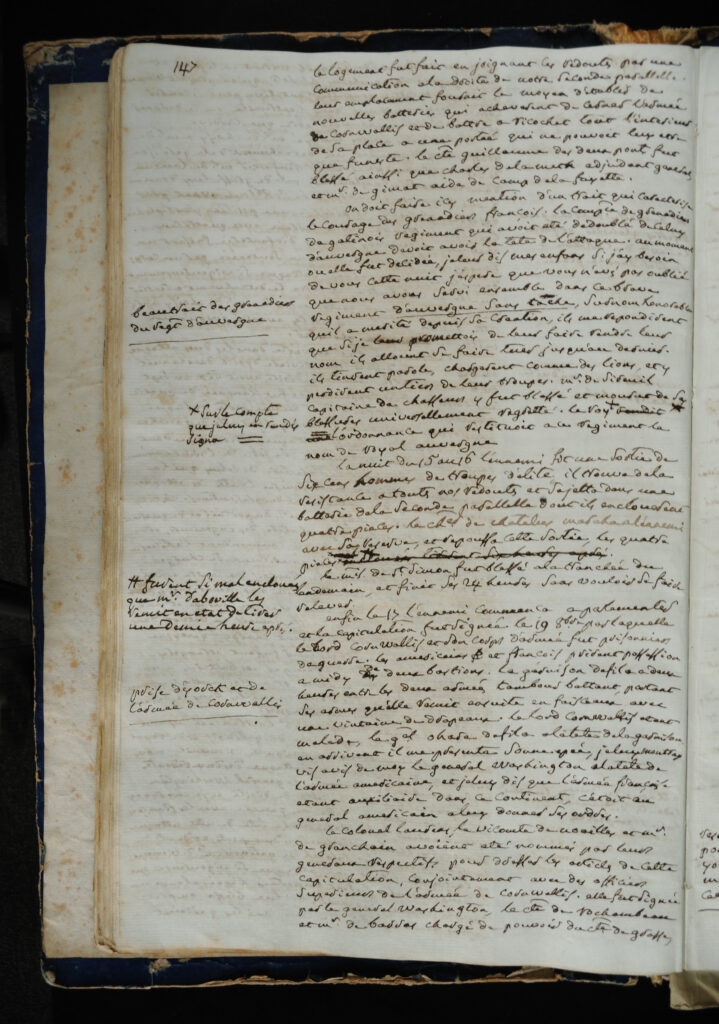 147
le logement fut fait en joignant les redoutes par une
communication a la droite de notre seconde parallelle.
leur emplacement fournit le moyen d'etablir de
nouvelles batteries qui acheverent de cerner l'armée
de Cornwallis et de battre a ricochet tout l'interieur
de la place a une portée qui ne pouvoit luy etre
que funeste. le cte guillaume des deux ponts fut
blessé ainsi que charles de lameth adjudant general,
et mr. de gimat aide de camp de la fayette.
on doit faire icy mention d'un trait qui caracterise
le courage des grenadiers françois. la compie de grenadiers
de gatinois regiment qui avoit eté dedoublé de celuy
d'auvergne devoit avoir la tete de l'attaque. au moment
ou elle fut decidée, je leur dis mes enfans si j'ay besoin
de vous cette nuit j'espere que vous n'avez pas oublié
que nous avons servi ensemble dans ce brave
regiment d'auvergne sans tache, surnom honorable
qu'il a merité depuis sa creation, ils me repondirent
que si je leur promettois de leur faire rendre leur
nom ils alloient se faire tuer jusqu'au dernier.
ils tinrent parole, chargerent comme des lions, et y
perdirent un tiers de leur troupe. mr. de sireuil
capitaine de chasseurs y fut blessé et mourut de ses
blessures universellement regretté. le roy rendit
l'ordonnance qui restituoit a ce regiment le
nom de royal auvergne
beau trait des grenadiers
du regt d'auvergne
x sur le compte
que je luy en rendis
signa
la nuit du 15 au 16 l'ennemi fit une sortie de
six cens hommes de troupes d'elite il trouva de la
resistance a touts nos redoutes et se jetta dans une
batterie de la seconde parallelle dont ils enclouerent
quatre pieces. le cher de chatelux marcha a l'ennemi
avec sa reserve, et repoussa cette sortie, les quatre
pieces ##
## furent si mal enclouées
que mr. d'aboville les
remit en etat de tirer
une demie heure après.
le mis de st. simon fut blessé a la tranchée du
lendemain, et finit ses 24 heures sans vouloir se faire
relever.
enfin le 17 l'ennemi commença a parlementer
et la capitulation fut signée le 19 8bre par laquelle
le lord cornwallis et son corps d'armée fut prisonnier
de guerre. les americains et françois prirent possession
a midy de deux bastions. la garnison defila a deux
heures entre les deux armées tambour battant portant
ses armes qu'elle remit ensuite en faisceaux avec
une vintaine de drapeaux. le lord cornwallis etant
malade, le gal ohara defila a la tete de la garnison
en arrivant il me presenta son epée, je luy montray
vis avis de moy le general washington a la tete de
l'armée americaine, et je luy dis que l'armée françoise
etant auxiliaire dans ce continent, c'etoit au
general americain a luy donner ses ordres.
prise d'yorck et de
l'armée de cornwallis
le colonel laurens, le vicomte de noailles et mr.
de granchain avoient eté nommés par leurs
generaux respectifs pour dresser les articles de cette
capitulation, conjointement avec des officiers
superieurs de l'armée de cornwallis. elle fut signée
par le general washington, le cte de rochambeau
et mr. de barras chargé de pouvoir du cte de grasse,